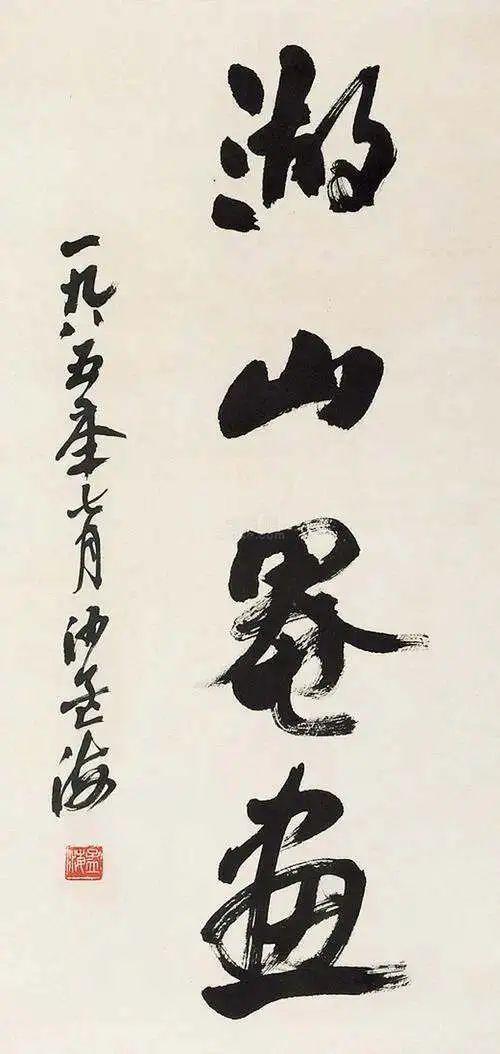 湖山罨畫
一九八五年七月 沙孟海